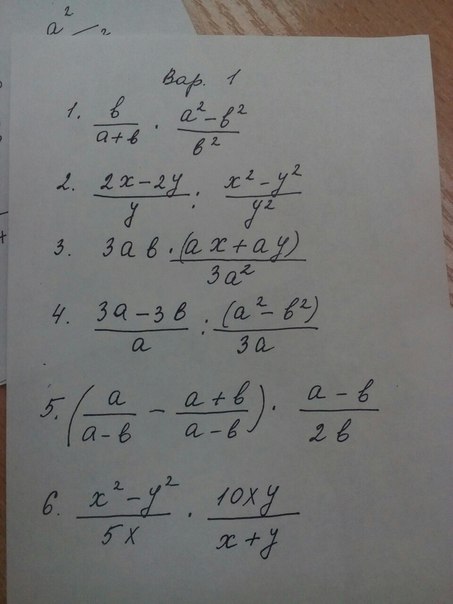 a²
Вар. 1
1. b/(a+b) · (a²-b²)/b²
2. (2x-2y)/y : (x²-y²)/y²
3. 3ab · (ax+ay)/3a²
4. (3a-3b)/a : (a²-b²)/3a
5. (a/(a-b) - (a+b)/(a-b)) · (a-b)/2b
6. (x²-y²)/5x · 10xy/(x+y)